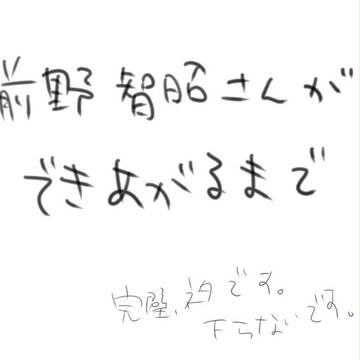 前野智昭さんが
できあがるまで
完璧、ネタです。
下らないです。